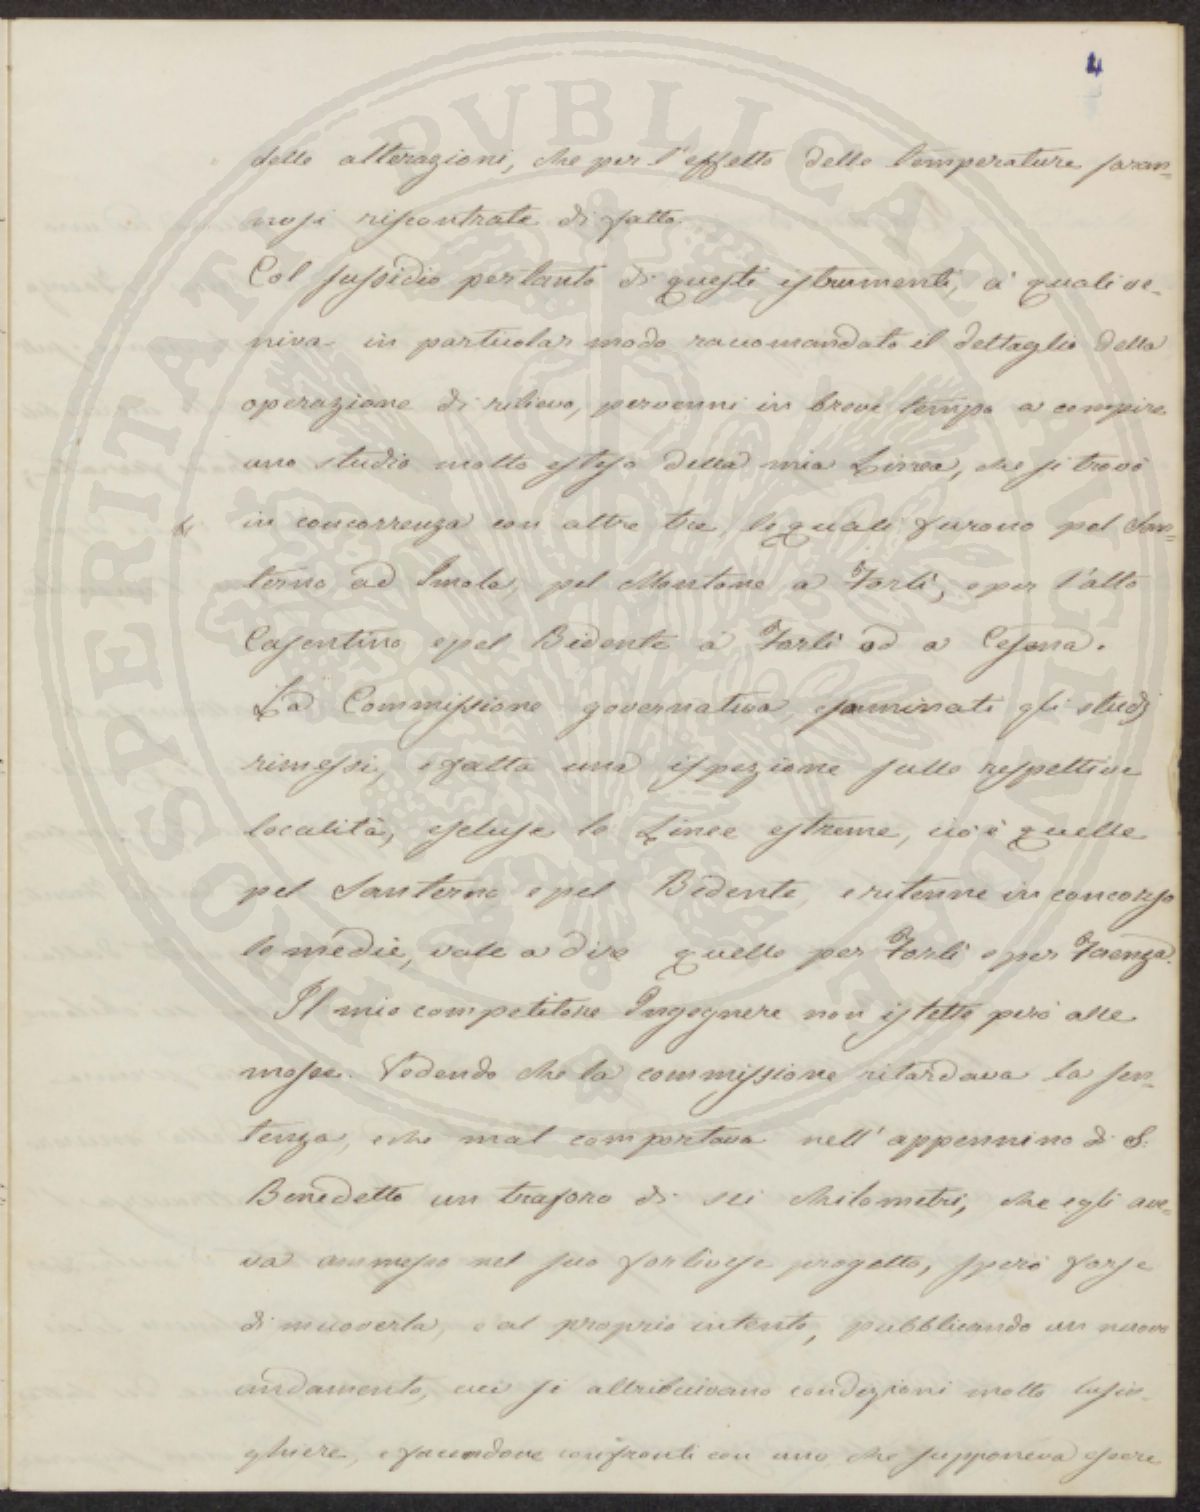 4
delle alterazioni, che per l'effetto delle temperature saran=
nosi riscontrate di fatto
Col sussidio pertanto di questi istrumenti, a' quali ve-
niva in particolar modo raccomandato il dettaglio della
operazione di rilievo, pervenni in breve tempo a compire
uno studio molto esteso della mia Linea, che si trovò
in concorrenza con altre tre, le quali furono pel San=
terno ad Imola, pel Montone a Forlì, e per l'alto
Casentino e pel Bidente a Forlì od a Cesena.
La Commissione governativa, esaminati gli studj
rimessi, e fatta una ispezione sulle respettive
località, escluse le Linee estreme, cioè quelle
pel Santerno e pel Bidente, e ritenne in concorso
le medie, vale a dire quelle per Forlì e per Faenza.
Il mio competitore Ingegnere non istette però alle
mosse. Vedendo che la commissione ritardava la sen=
tenza, e che mal comportava nell'appennino di S.
Benedetto un traforo di sei chilometri, che egli ave=
va ammesso nel suo forlivese progetto, sperò forse
di muoverla, e al proprio intento, pubblicando un nuovo
andamento, cui si attribuivano condizioni molto lusin-
ghiere, e facendone confronti con uno che supponeva essere
PROSPERITATI PVBLICAE AVGENDAE